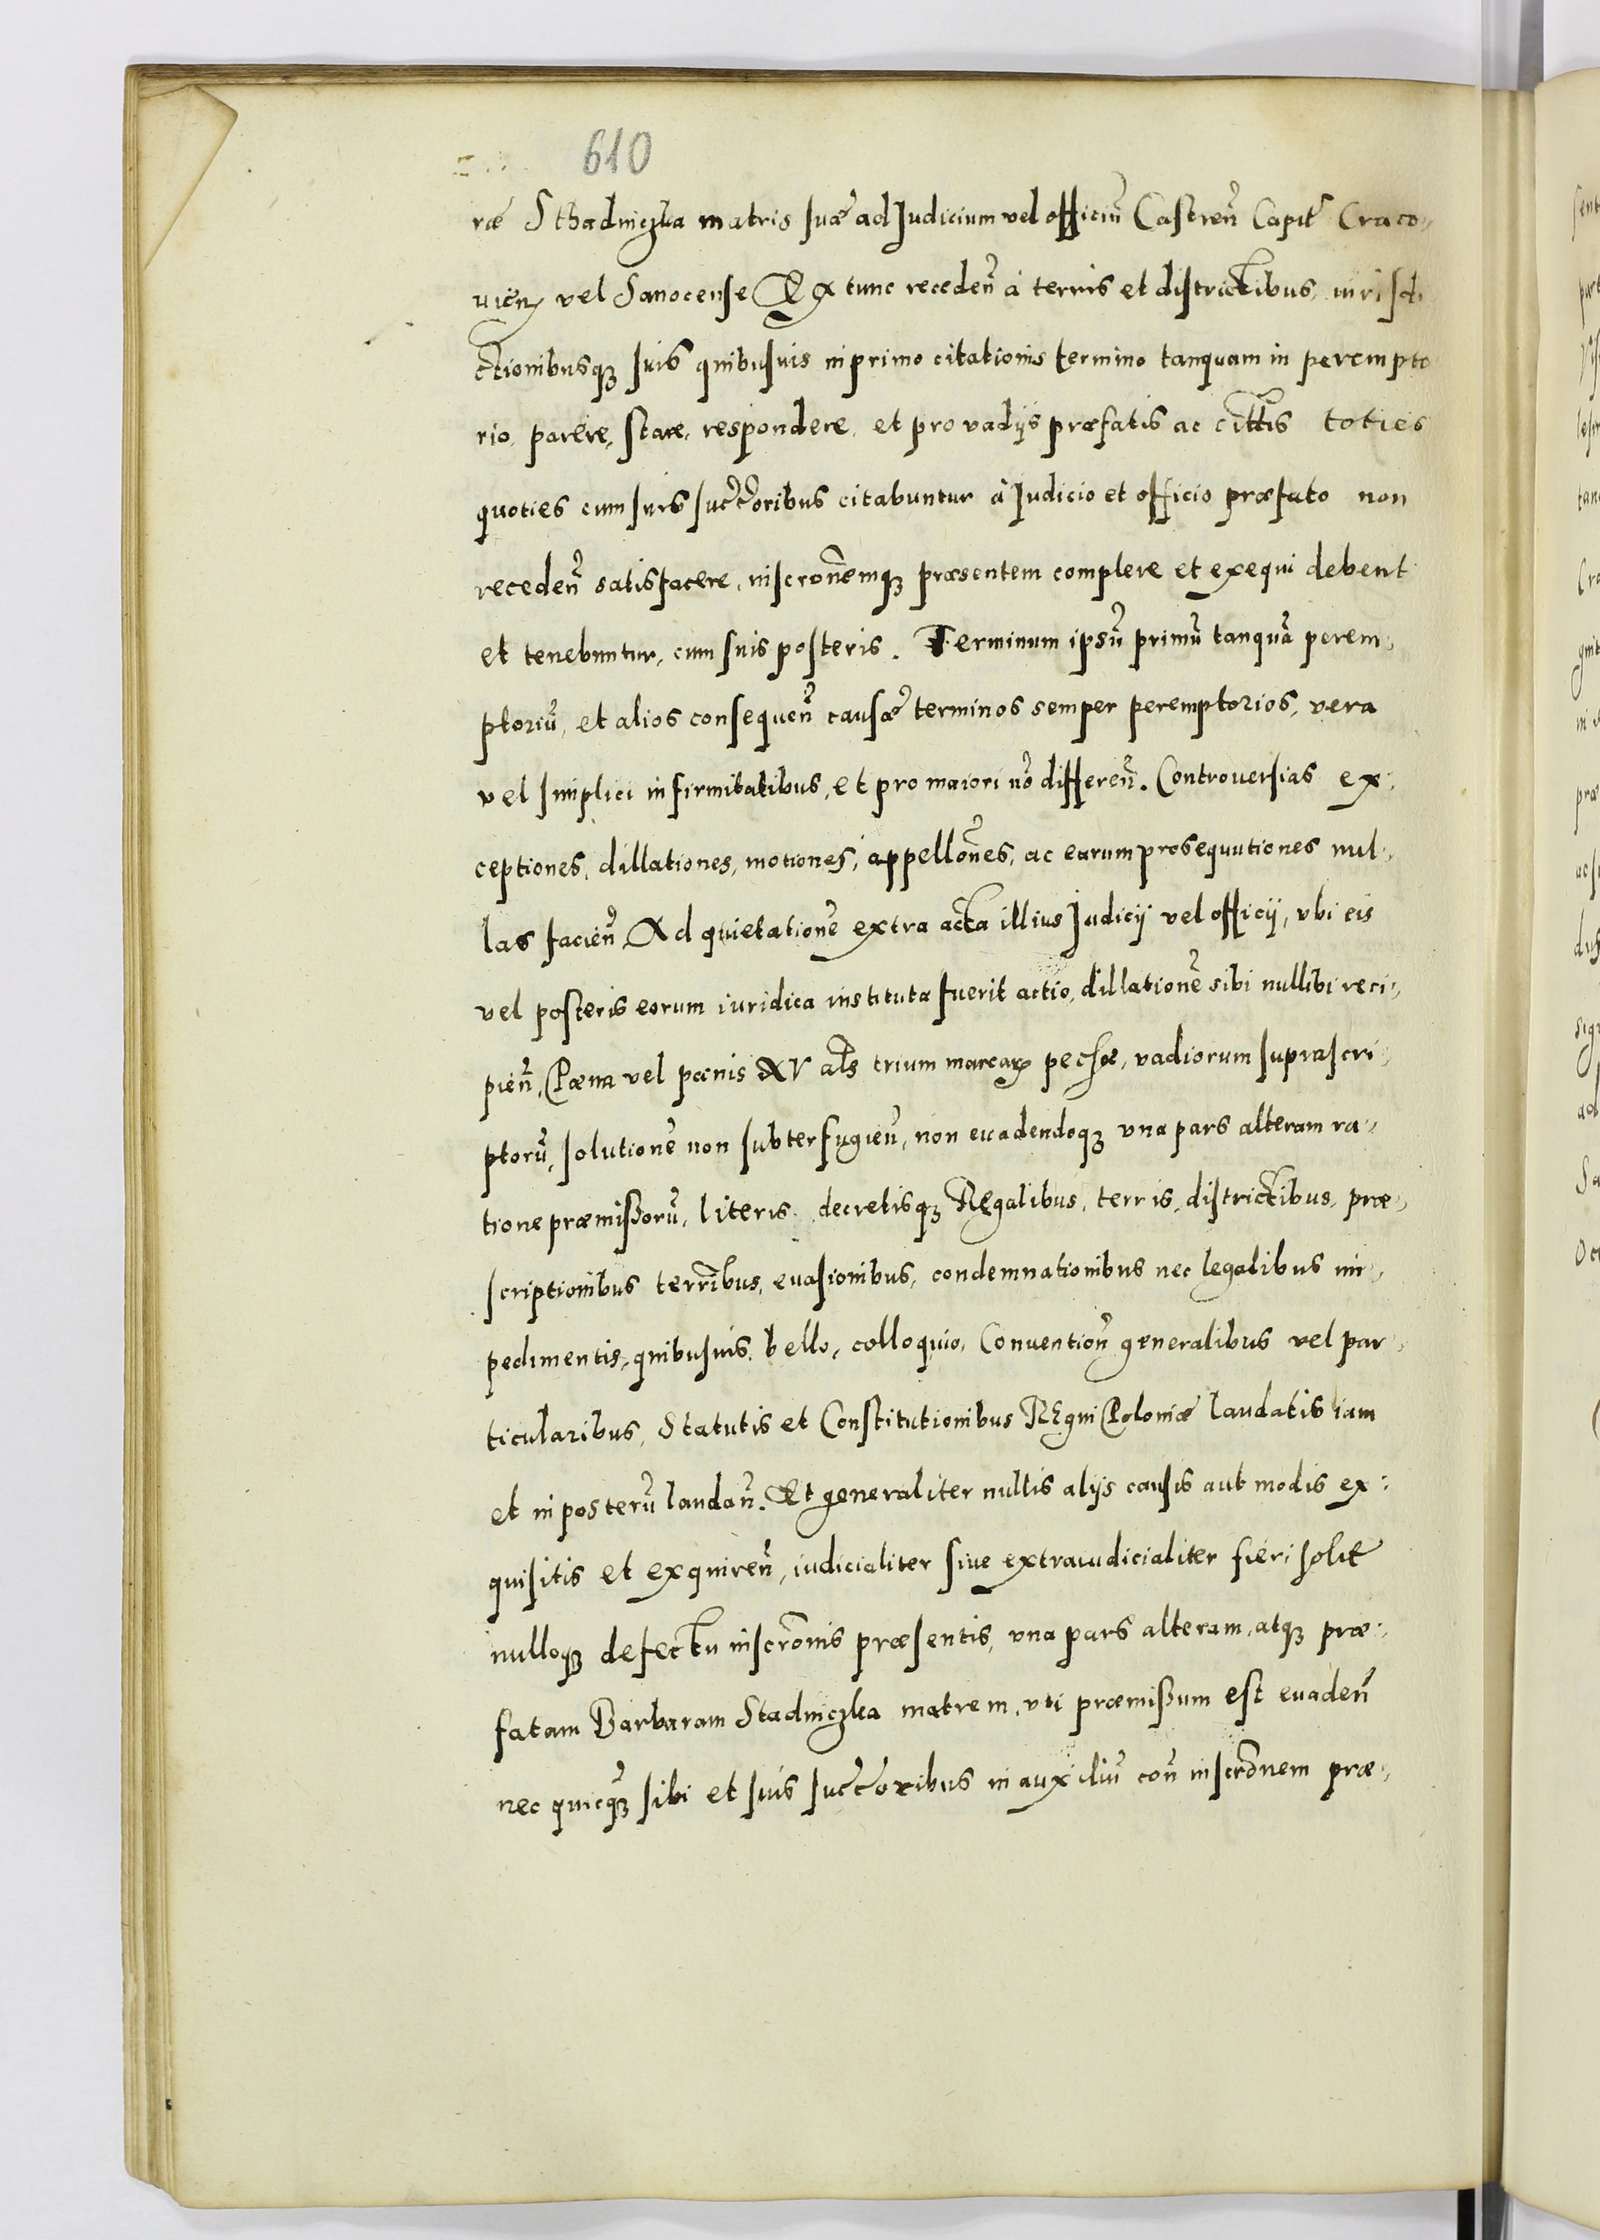 610
ræ Sthadniczka matris suæ ad Judicium vel officiũ Castreñ Capit Craco-
vieñ vel Sanocense Ex tunc recedeñ à terris et districtibus, iurisdi
ctionibusq₃ suis quibusuis in primo citationis termino tanquam in perempto
rio, parere, stare, respondere, et pro vadijs præfatis ac cittis toties
quoties cum suis succ̃oribus citabuntur à Judicio et officio præfato non
recedeñ satisfacere, inscronemq₃ præsentem complere et exequi debent
et tenebuntur, cum suis posteris. Terminum ipsũ primũ tanquã perem-
ptoriũ, et alios consequeñ causæ terminos semper peremptorios, vera
vel simplici infirmitatibus, et pro maiori nõ differeñ. Controuersias ex-
ceptiones, dillationes, motiones, appellõnes, ac earum prosequutiones nul-
las facieñ. Ad quietationẽ extra acta illius Judicij vel officij, vbi eis
vel posteris eorum iuridica instituta fuerit actio, dillationẽ sibi nullibi reci-
pieñ, Pœna vel pœnis XV als trium marcaꝝ pechæ, vadiorum suprascri-
ptorũ, solutionẽ non subterfugieñ, non euadendoq₃ vna pars alteram ra-
tione præmissorũ, literis, decretisq₃ Regalibus, terris, districtibus, præ-
scriptionibus terribus, euasionibus, condemnationibus nec legalibus im-
pedimentis, quibusuis, bello, colloquio, Conuentioñ generalibus vel par-
ticularibus, Statutis et Constitutionibus Regni Poloniæ laudatis iam
et in posterũ laudañ. Et generaliter nullis alijs causis aut modis ex-
quisitis et exquireñ, iudicialiter siue extraiudicialiter fieri solit
nulloq₃ defectu inscronis præsentis, vna pars alteram, atq₃ præ-
fatam Barbaram Stadniczka matrem, vti præmissum est euadeñ
nec quicq₃ sibi et suis succ̃oribus in auxiliũ coñ inscronem præ-